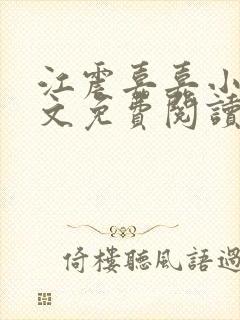 江震喜喜小
文免費閱讀
倚樓聽風語過